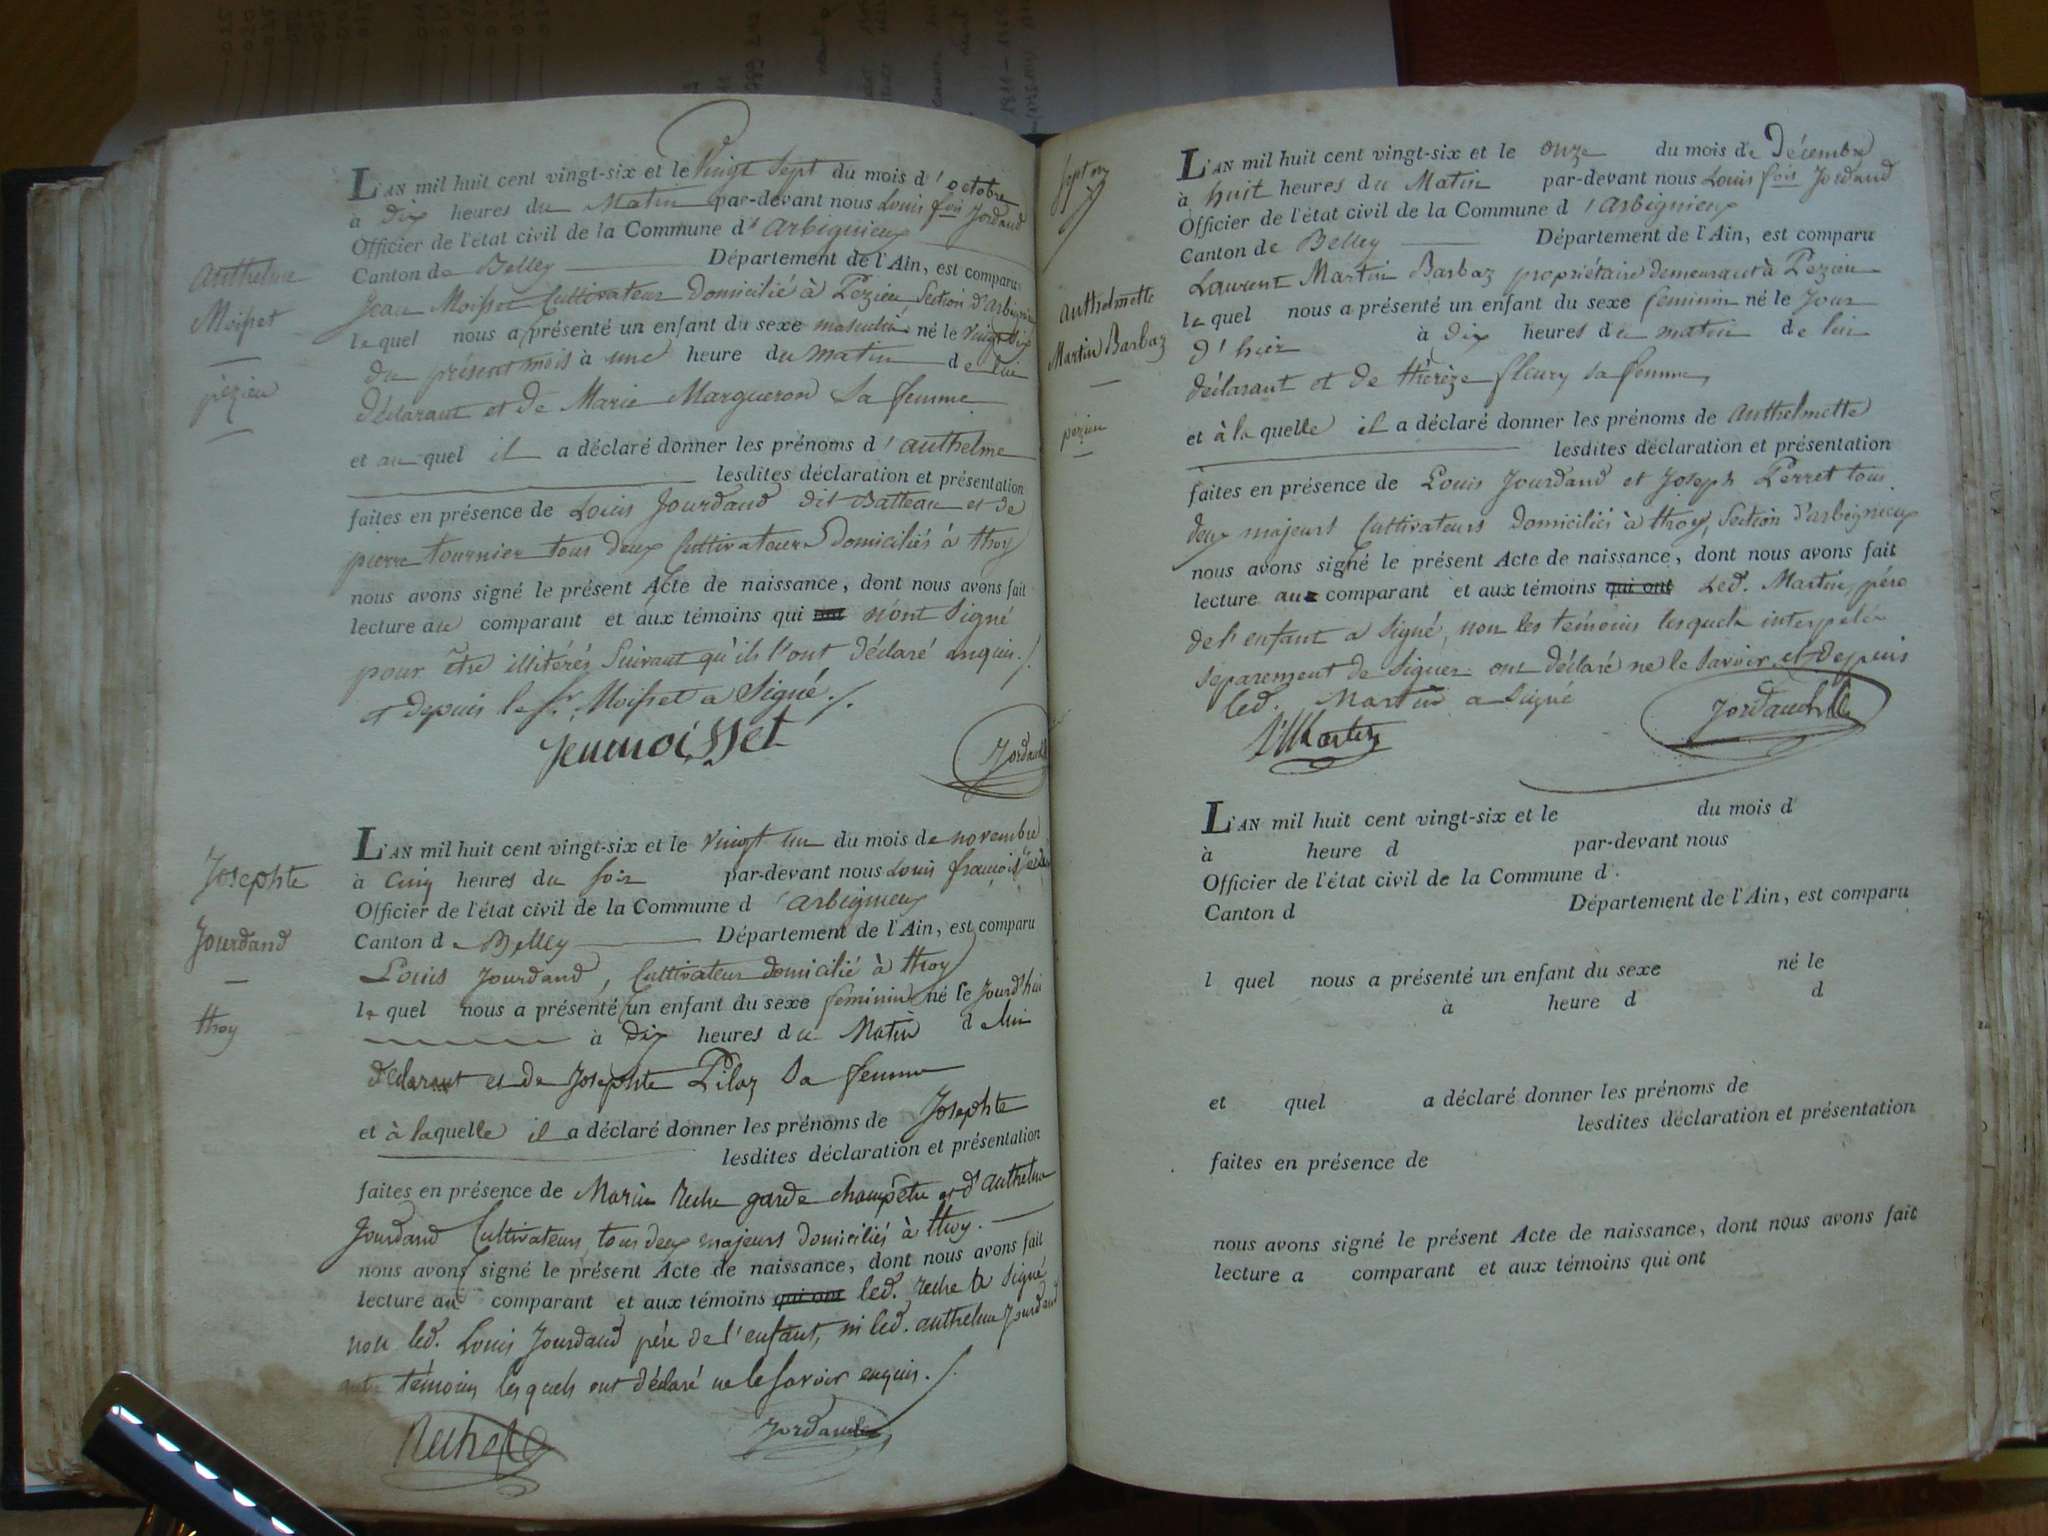 L'AN mil huit cent vingt-six et le Vingt Sept du mois d'octobre
à Dix heures du Matin par-devant nous Louis fois Jordand
Officier de l'état civil de la Commune d'Arbignieux
Canton de Belley Département de l'Ain, est comparu
Jean Moisset Cultivateur Domicilié à Pezieu Section d'arbignieux
le quel nous a présenté un enfant du sexe masculin né le Vingt Six
du présent mois à une heure du matin de lui
Déclarant et de Marie Margueron Sa femme
et au quel il a déclaré donner les prénoms d'authelme
lesdites déclaration et présentation
faites en présence de Louis Jourdand dit Batteau et de
pierre tournier tous deux Cultivateurs Domiciliés à thoy
nous avons signé le présent Acte de naissance, dont nous avons fait
lecture au comparant et aux témoins qui ont n'ont Signé
pour être illitérés Suivant qu'ils l'ont déclaré enquis ./.
et depuis le Sr. Moisset a Signé ./.
jeanmoisset
Jordand
authelme
Moisset
pézieu
L'AN mil huit cent vingt-six et le vingt un du mois de novembre
à Cinq heures du soir par-devant nous Louis françois
Officier de l'état civil de la Commune d'arbignieux
Canton de Belley Département de l'Ain, est comparu
Louis Jourdand, Cultivateur domicilié à thoy
le quel nous a présenté un enfant du sexe feminin né le Jourd'hui
à dix heures du Matin de lui
déclarant et de Josephte Pilaz Sa femme
et à laquelle il a déclaré donner les prénoms de Josephte
lesdites déclaration et présentation
faites en présence de Marin Reche garde champêtre et d'authelme
Jourdand Cultivateur, tous deux majeurs domiciliés à thoy.
nous avons signé le présent Acte de naissance, dont nous avons fait
lecture au comparant et aux témoins qui ont led. reche a Signé
non led. Louis Jourdand père de l'enfant, ni led. authelme Jourdand
autre témoin les quels ont déclaré ne le savoir enquis ./.
Reche
Jordand
Josephte
Jourdand
thoy
L'AN mil huit cent vingt-six et le onze du mois de Décembre
à huit heures du Matin par-devant nous Louis fois Jordand
Officier de l'état civil de la Commune d'arbignieux
Canton de Belley Département de l'Ain, est comparu
Laurent Martin Barbaz propriétaire demeurant à Pezieu
le quel nous a présenté un enfant du sexe feminin né le Jour
d'hier à dix heures du matin de lui
déclarant et de thérèze fleury sa femme,
et à la quelle il a déclaré donner les prénoms de authelmette
lesdites déclaration et présentation
faites en présence de Louis Jourdand et Joseph Perret tous
deux majeurs Cultivateurs Domiciliés à thoy, Section d'arbignieux
nous avons signé le présent Acte de naissance, dont nous avons fait
lecture au comparant et aux témoins qui ont Led. Martin père
de l'enfant a Signé, non les témoins lesquels interpelés
séparement de Signer ont déclaré ne le Savoir et depuis
led. Martin a signé
Martin
Jordand
authelmette
Martin Barbaz
pézieu
L'AN mil huit cent vingt-six et le du mois d
à heure d par-devant nous
Officier de l'état civil de la Commune d
Canton d Département de l'Ain, est comparu
l quel nous a présenté un enfant du sexe né le
à heure d d
et quel a déclaré donner les prénoms de
lesdites déclaration et présentation
faites en présence de
nous avons signé le présent Acte de naissance, dont nous avons fait
lecture a comparant et aux témoins qui ont